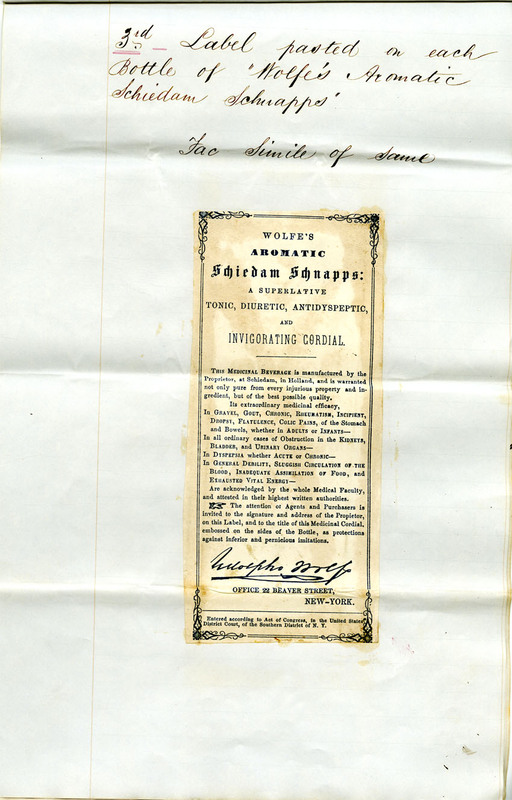 3rd - Label pasted on each
Bottle of "Wolfe's Aromatic
Schiedam Schnapps"
Fac Simile of Same
WOLFE'S
AROMATIC
Schiedam Schnapps:
A SUPERLATIVE
TONIC, DIURETIC, ANTIDYSPEPTIC,
AND
INVIGORATING CORDIAL.
THIS MEDICINAL BEVERAGE is manufactured by the
Proprietor, at Schiedam, in Holland, and is warranted
not only pure from every injurious property and in-
gredient, but of the best possible quality.
Its extraordinary medicinal efficacy,
In GRAVEL, GOUT, CHRONIC, RHEUMATISM, INCIPIENT,
DROPSY, FLATULENCE, COLIC PAINS, of the Stomach
and Bowels, whether in ADULTS or INFANTS—
In all ordinary cases of Obstruction in the KIDNEYS,
BLADDER, and URINARY ORGANS—
In DYSPEPSIA whether ACUTE or CHRONIC—
In GENERAL DEBILITY, SLUGGISH CIRCULATION OF THE
BLOOD, INADEQUATE ASSIMILATION OF FOOD, and
EXHAUSTED VITAL ENERGY—
Are acknowledged by the whole Medical Faculty,
and attested in their highest written authorities.
☞ The attention of Agents and Purchasers is
invited to the signature and address of the Propietor,
on this Label, and to the title of this Medicinal Cordial,
embossed on the sides of the Bottle, as protections
against inferior and pernicious imitations.
Udolpho Wolfe
OFFICE 22 BEAVER STREET,
NEW-YORK.
Entered according to Act of Congress, in the United States'
District Court, of the Southern District of N. Y.